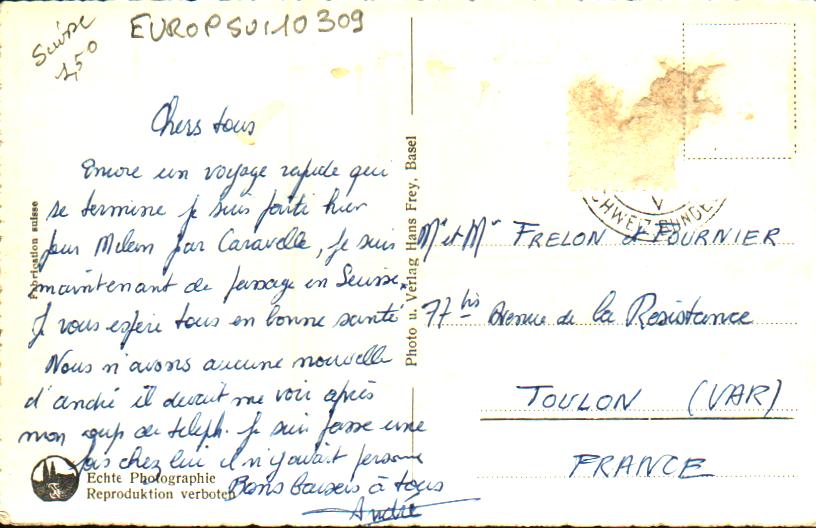 Suisse
1,50
EUROPSUI10309
Chers tous
Encore un voyage rapide qui
se termine je suis parti hier
pour Milan par Caravelle, je suis
maintenant de passage en Suisse.
Je vous espère tous en bonne santé
Nous n'avons aucune nouvelle
d'andré il devait me voir après
mon coup de teleph. je suis passe une
fois chez lui il n'y avait personne
Bons baisers à tous
André
Fabrication suisse
Echte Photographie
Reproduktion verboten
Photo u. Verlag Hans Frey, Basel
SCHWEIZ. BUNDE
V
Mr et Mr FRELON et FOURNIER
77 bis Avenue de la Resistance
TOULON (VAR)
FRANCE